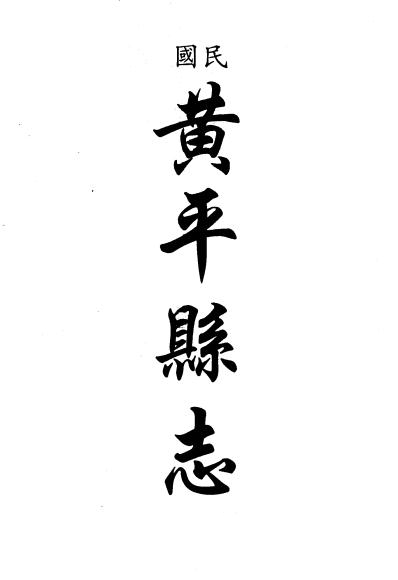 民國
黄平縣志